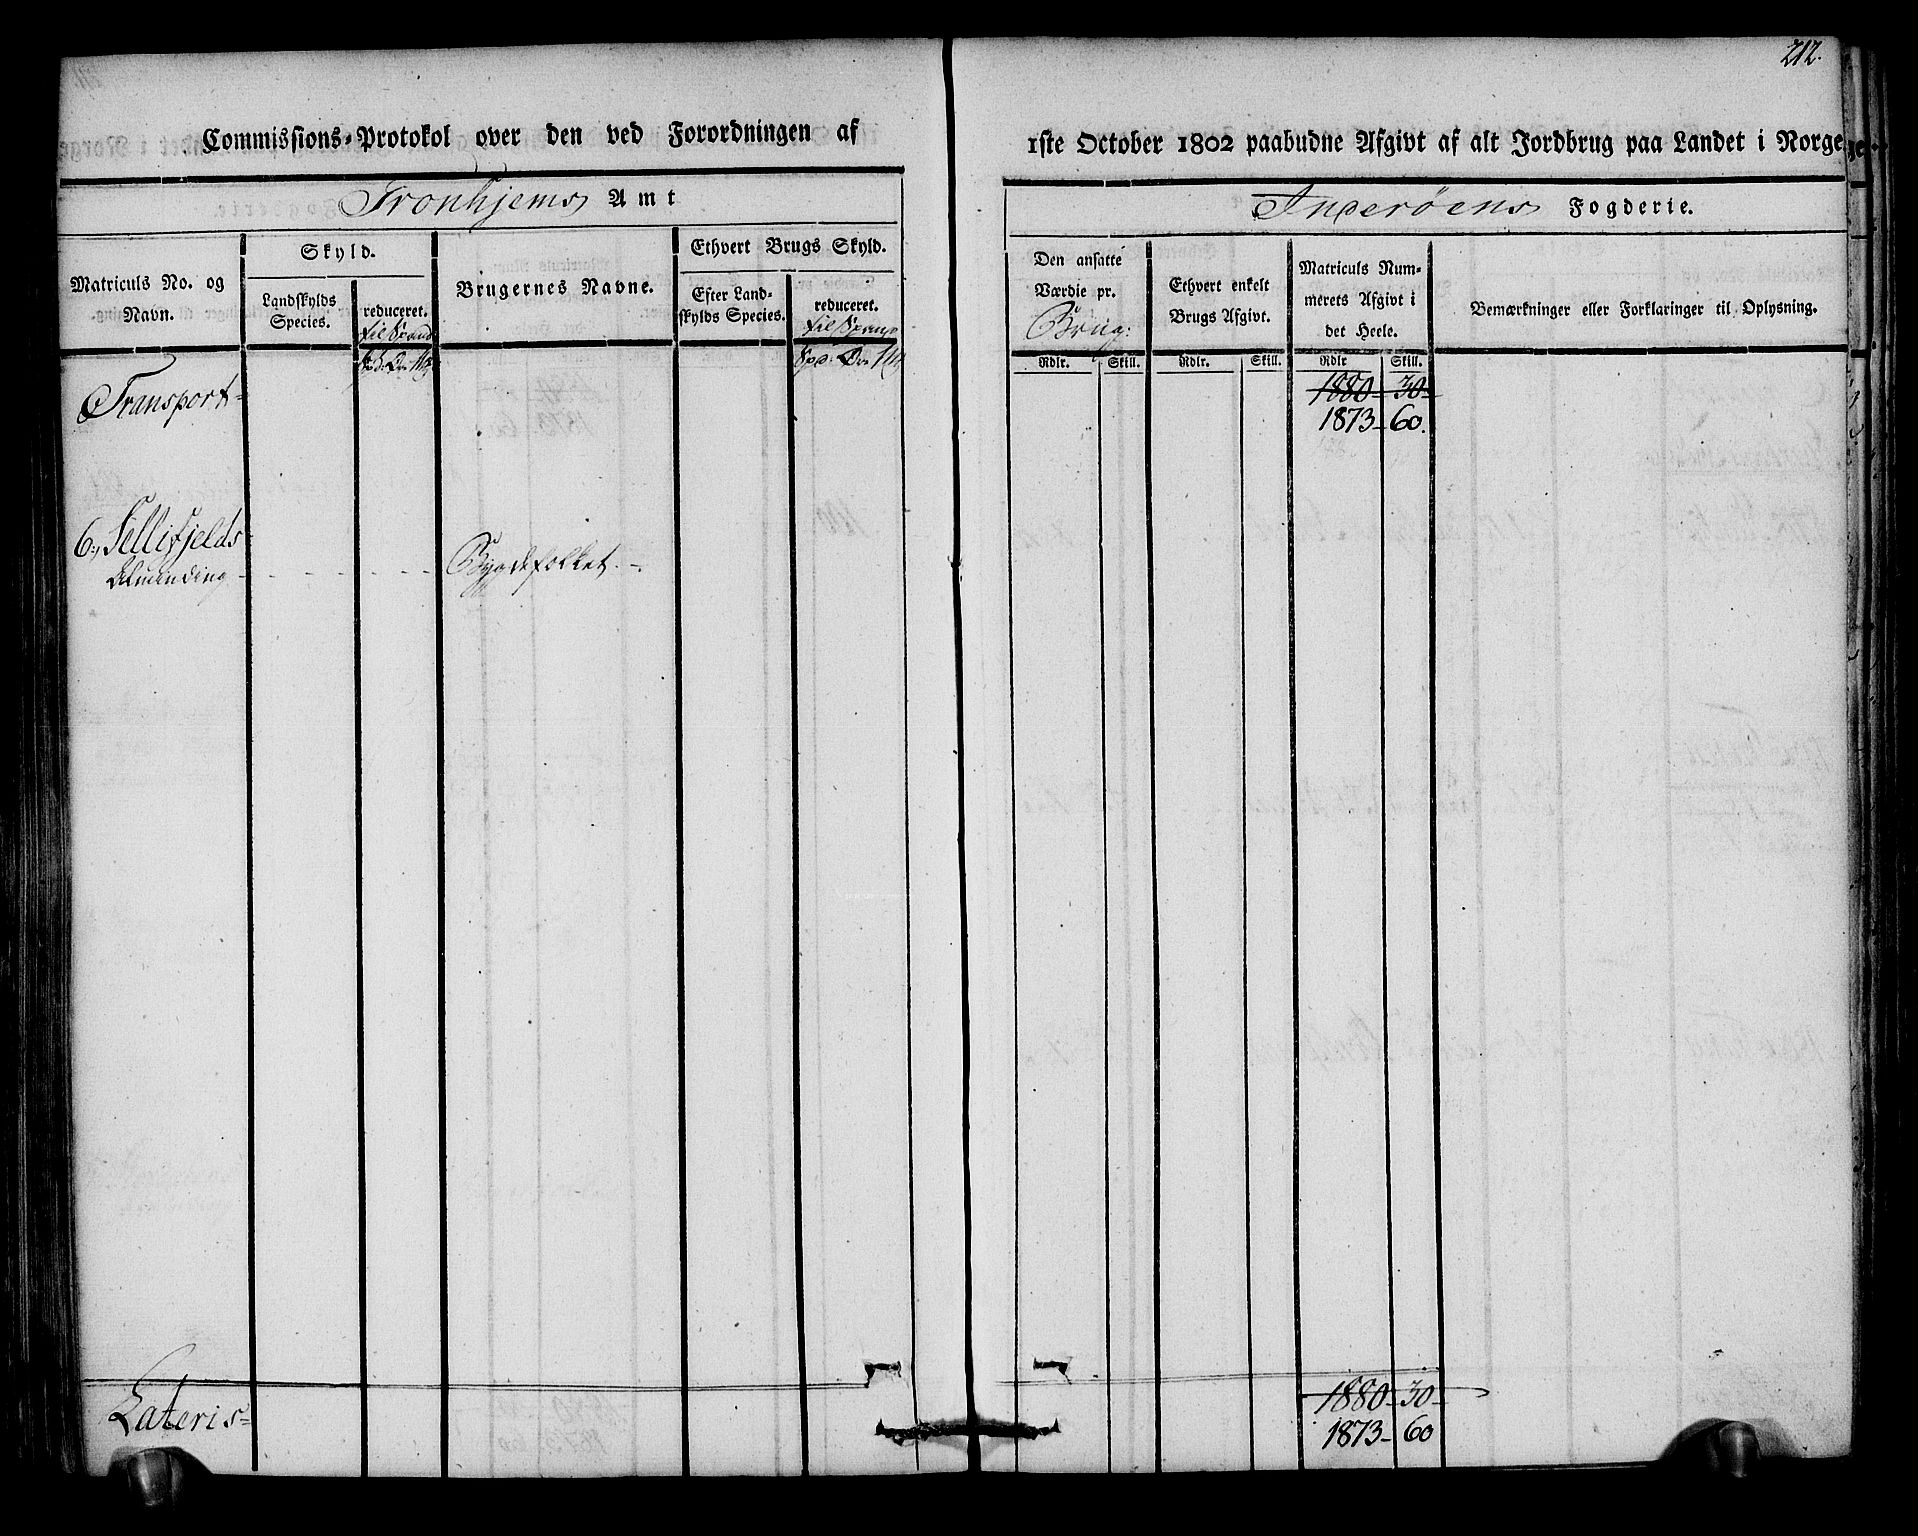 212.
Commissions-Protokol over den ved Forordningen af
1ste October 1802 paabudne Afgivt af alt Jordbrug paa Landet i Norge
Tronhjems Amt
Inderöens Fogderie.
Matriculs No. og
Navn.
Skyld.
Landskylds
Species.
reduceret.
til Spand
Spd: Ör. Mk
Brugernes Navne.
Ethvert Brugs Skyld.
Efter Land-
skylds Species.
reduceret.
til Spand
Spd: Ör. Mk
Den ansatte
Værdie pr.
Brug:
Rdlr. Skill.
Ethvert enkelt
Brugs Afgivt.
Rdlr. Skill.
Matriculs Num-
merets Afgivt i
det Heele.
Rdlr Skill.
Bemærkninger eller Forklaringer til Oplysning.
Transport
1880 30
1873 60.
6, Sellifjelds
Alminding
Bygdefolket
Lateris
1880 30
1873 60